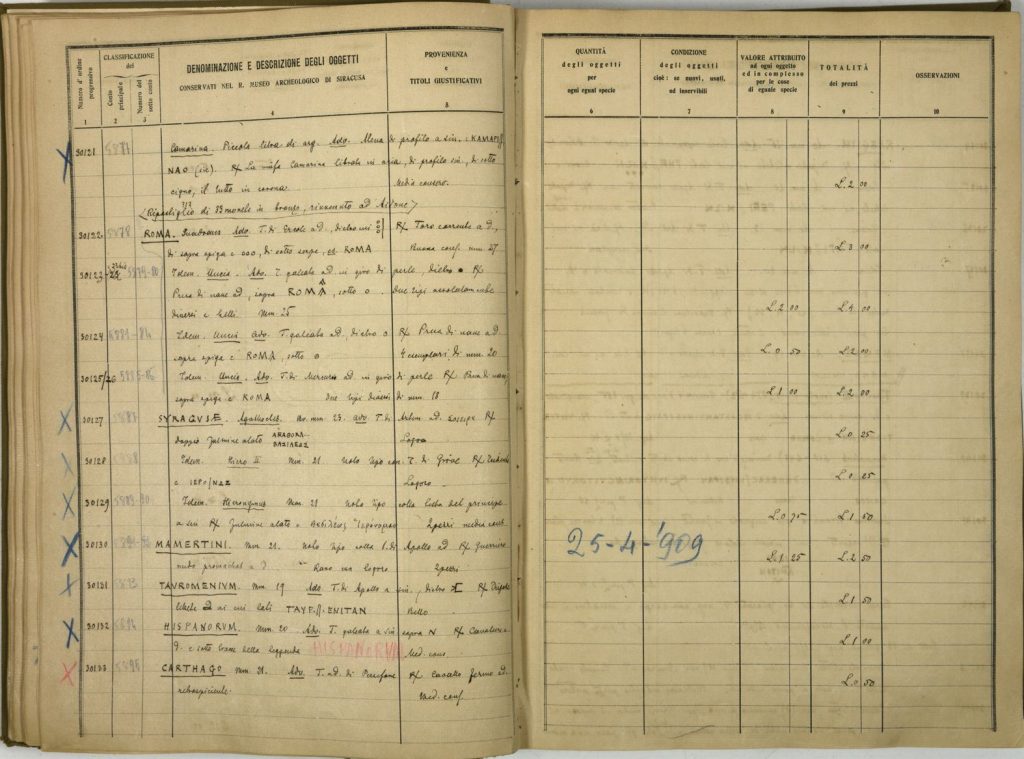 Numero d'ordine progressivo
CLASSIFICAZIONE del
Conto principale e
Numero del sotto conto
DENOMINAZIONE E DESCRIZIONE DEGLI OGGETTI
CONSERVATI NEL R. MUSEO ARCHEOLOGICO DI SIRACUSA
PROVENIENZA
e
TITOLI GIUSTIFICATIVI
1 2 3 4 5
30121 5877 Camarina. Piccola litra di arg. Adv. di profilo a sin. : KAMAP
NAO (sic). R/ La ninfa Camarina librata in aria, di profilo sin., di sotto
cigno, il tutto in corona. Media conserv.
(Ripostiglio di 33 monete in bronzo, rinvenuto ad Aidone)
30122 5878 ROMA. Quadrans Adv. T. di Ercole a d., dietro R/ Toro corrente a d.,
di sopra spiga e ooo, di sotto serpe, ROMA Buona cons. mm 27
30123 5879-80 Idem. Uncia. Adv. T. galeata a d. in giro di perle, dietro o R/
Prua di nave a d., sopra ROMA, sotto o. Due tipi
diversi e belli. Mm. 25
30124 5881-84 Idem. Uncia Adv. T. galeata a d., dietro o R/ Prua di nave a d
sopra spiga e ROMA, sotto o 4 esemplari di mm. 20
30125/26 5885-86 Idem. Uncia. Adv. T. di Mercurio a d. in giro di perle R/ Prua di nave
sopra spiga e ROMA Due tipi diversi di mm. 18
30127 5887 SYRAGVSÆ. Agathocles. mm. 23. Adv. T. di a d. R/
doppio fulmine alato Logora
30128 5888 Idem. Hiero II Mm. 21. Noto tipo con T. di R/
Logoro.
30129 5889-90 Idem. Hieronymus Mm. 21 Noto tipo colla testa del principe
a sin R/ Fulmine alato e 2 pezzi media cons.
30130 MAMERTINI. Mm 21. Noto tipo colla t. di Apollo a d R/ Guerriero
nudo Raro ma logoro 2 pezzi
30131 5893 TAVROMENIVM. Mm 19 Adv. T. di Apollo a sin., dietro R/ Tripode
ai cui lati Bello.
30132 5894 HISPANORVM. Mm. 20 Adv. T. galeata a sin sopra N R/ Cavaliere a
d. e sotto tracce della leggenda HISPANORVM Med. cons.
30133 5895 CARTHAGO Mm. 21. Adv. T. a d. di Persefone R/ Cavallo fermo a d.
retrospiciente. Med. cons.
QUANTITÀ
degli oggetti
per
ogni egual specie
CONDIZIONE
degli oggetti
cioè: se nuovi, usati,
od inservibili
VALORE ATTRIBUITO
ad ogni oggetto
ed in complesso
per le cose
di eguale specie
TOTALITÀ
dei prezzi
OSSERVAZIONI
6 7 8 9 10
L. 2 00
L. 3 00
L. 2 00 L. 4 00
L. 0 50 L. 2 00
L. 1 00 L. 2 00
L. 0 25
L. 0 25
L. 0 75 L. 1 50
25-4-'909
L. 1 25 L. 2 50
L. 1 50
L. 1 00
L. 0 50